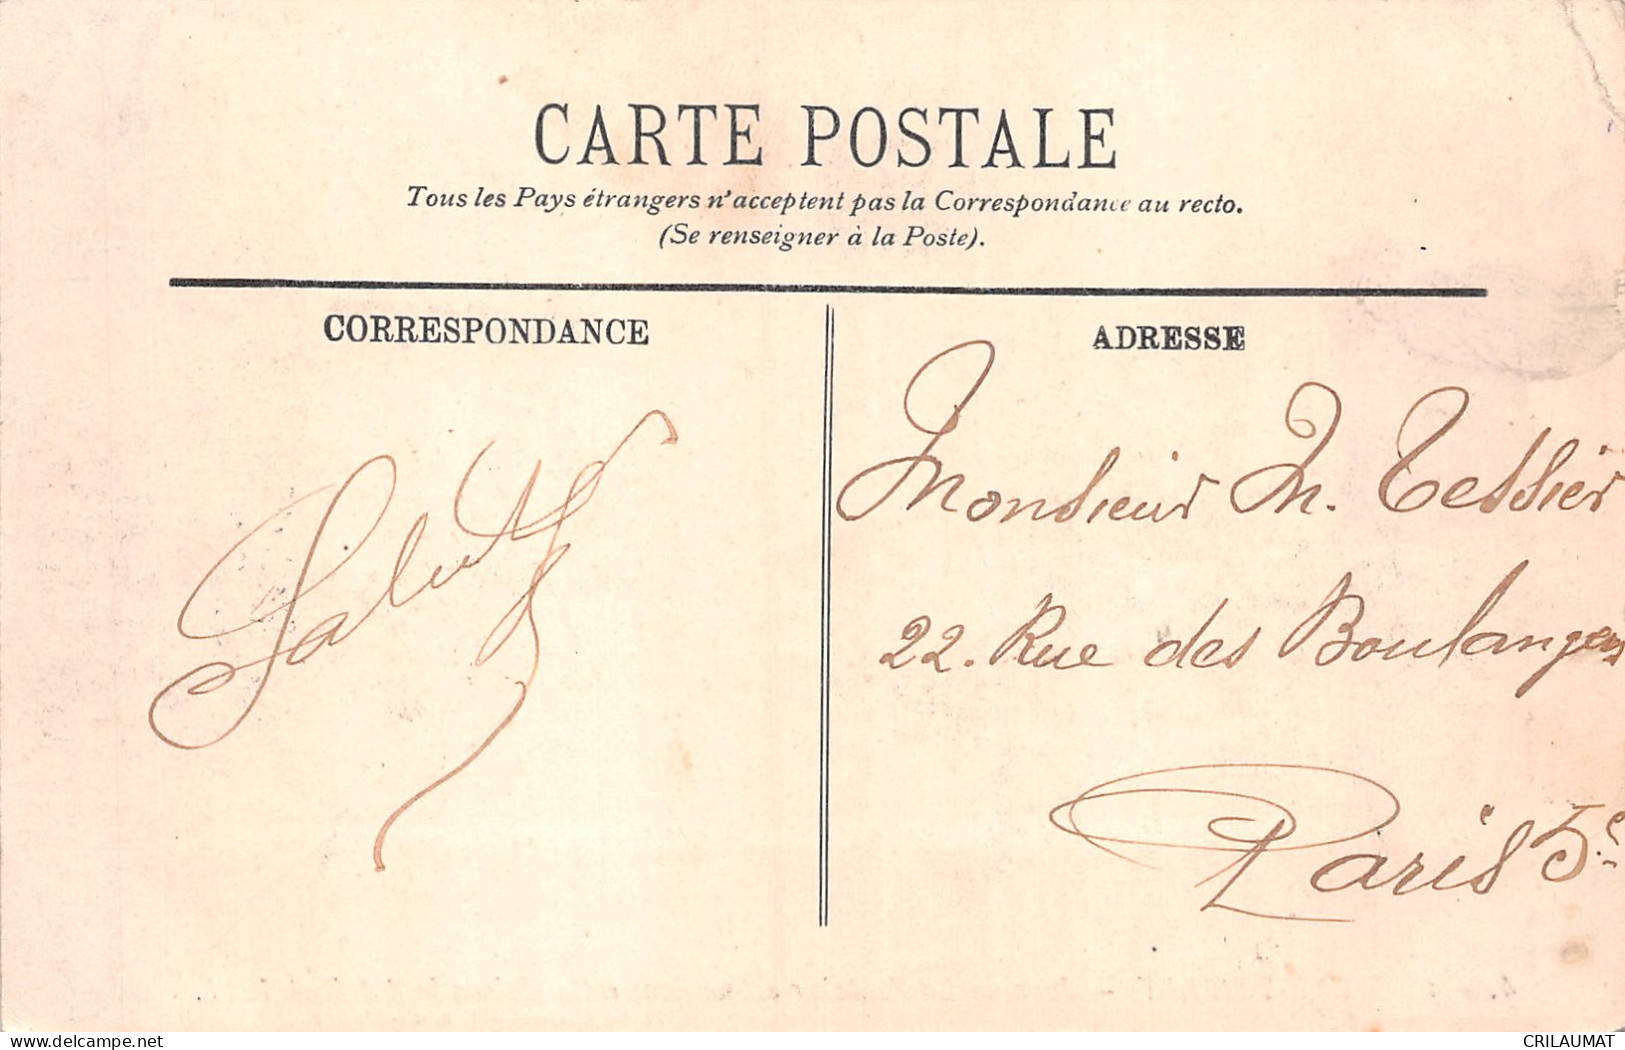 CARTE POSTALE
Tous les Pays étrangers n'acceptent pas la Correspondance au recto.
(Se renseigner à la Poste).
CORRESPONDANCE
ADRESSE
Salut
Monsieur M. Tessier
22. Rue des Boulangers
Paris 5e
delcampe.net
CRILAUMAT